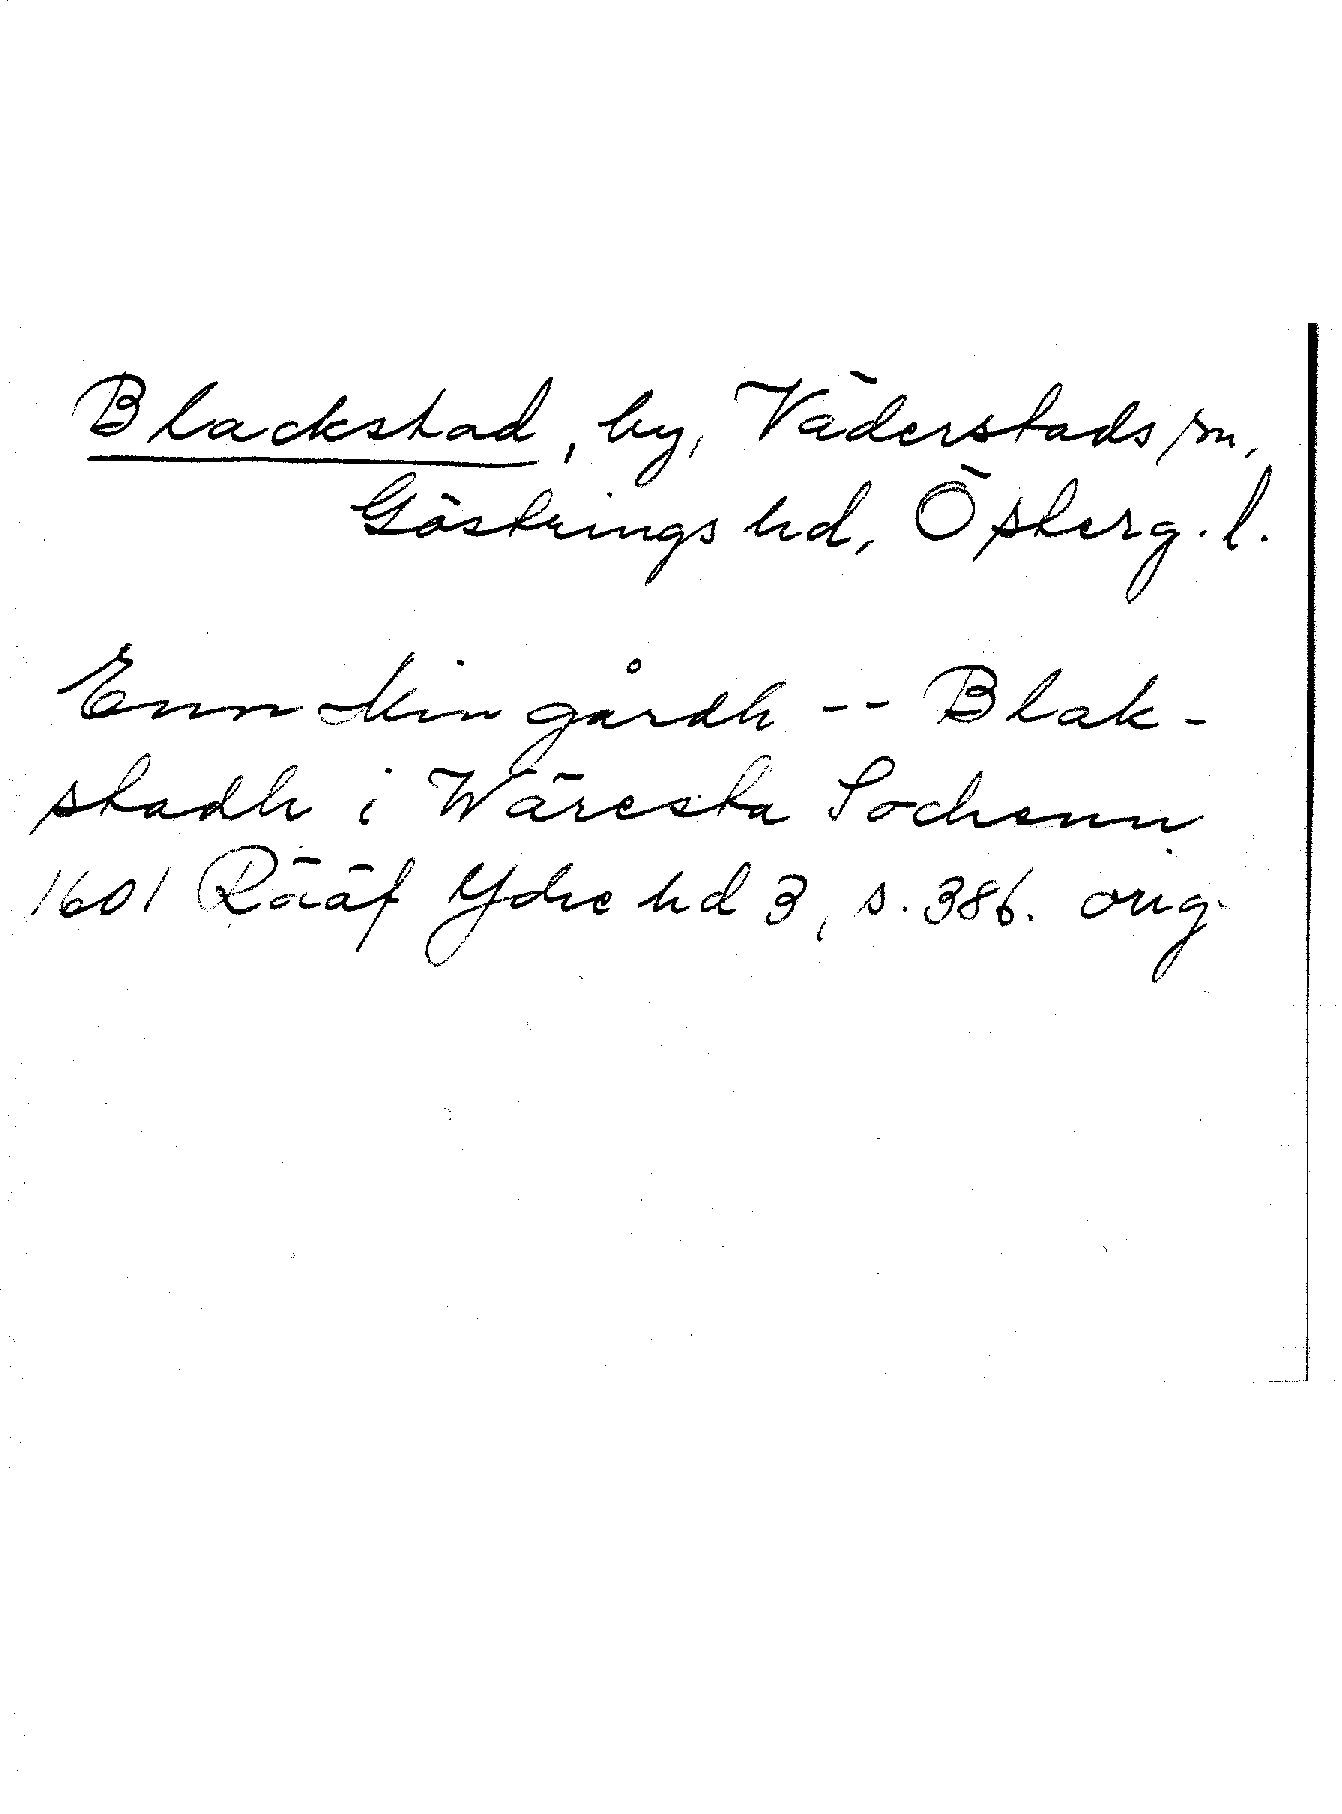 Blackstad, by, Väderstads sn,
Göstrings hd, Österg. l.
Enn Min gårdh -- Blak-
stadh i Wäresta Sochenn
1601 Rääf Ydre hd 3, s. 386. orig.